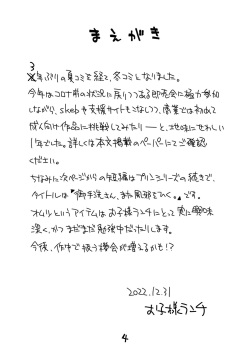 まえがき
3年ぶりの夏コミを経て、冬コミとなりました。
今年はコロナ前の状況に戻りつつある即売会に極力参加
しながら、skebや支援サイトもこなしつつ、商業では初めて
成人向け作品に挑戦してみたり――と、地味にせわしい
1年でした。詳しくは本文掲載のペーパーにてご確認
ください。
ちなみに次ページからの短編はプリンシリーズの続きで、
タイトルは『御手洗さん、また風邪をひく。』です。
オムツというアイテムはお子様ランチにとって実に興味
深く、かつまだまだ勉強中だったりします。
今後、作中で扱う機会が増えるかも!?
2022.12.31
お子様ランチ
4